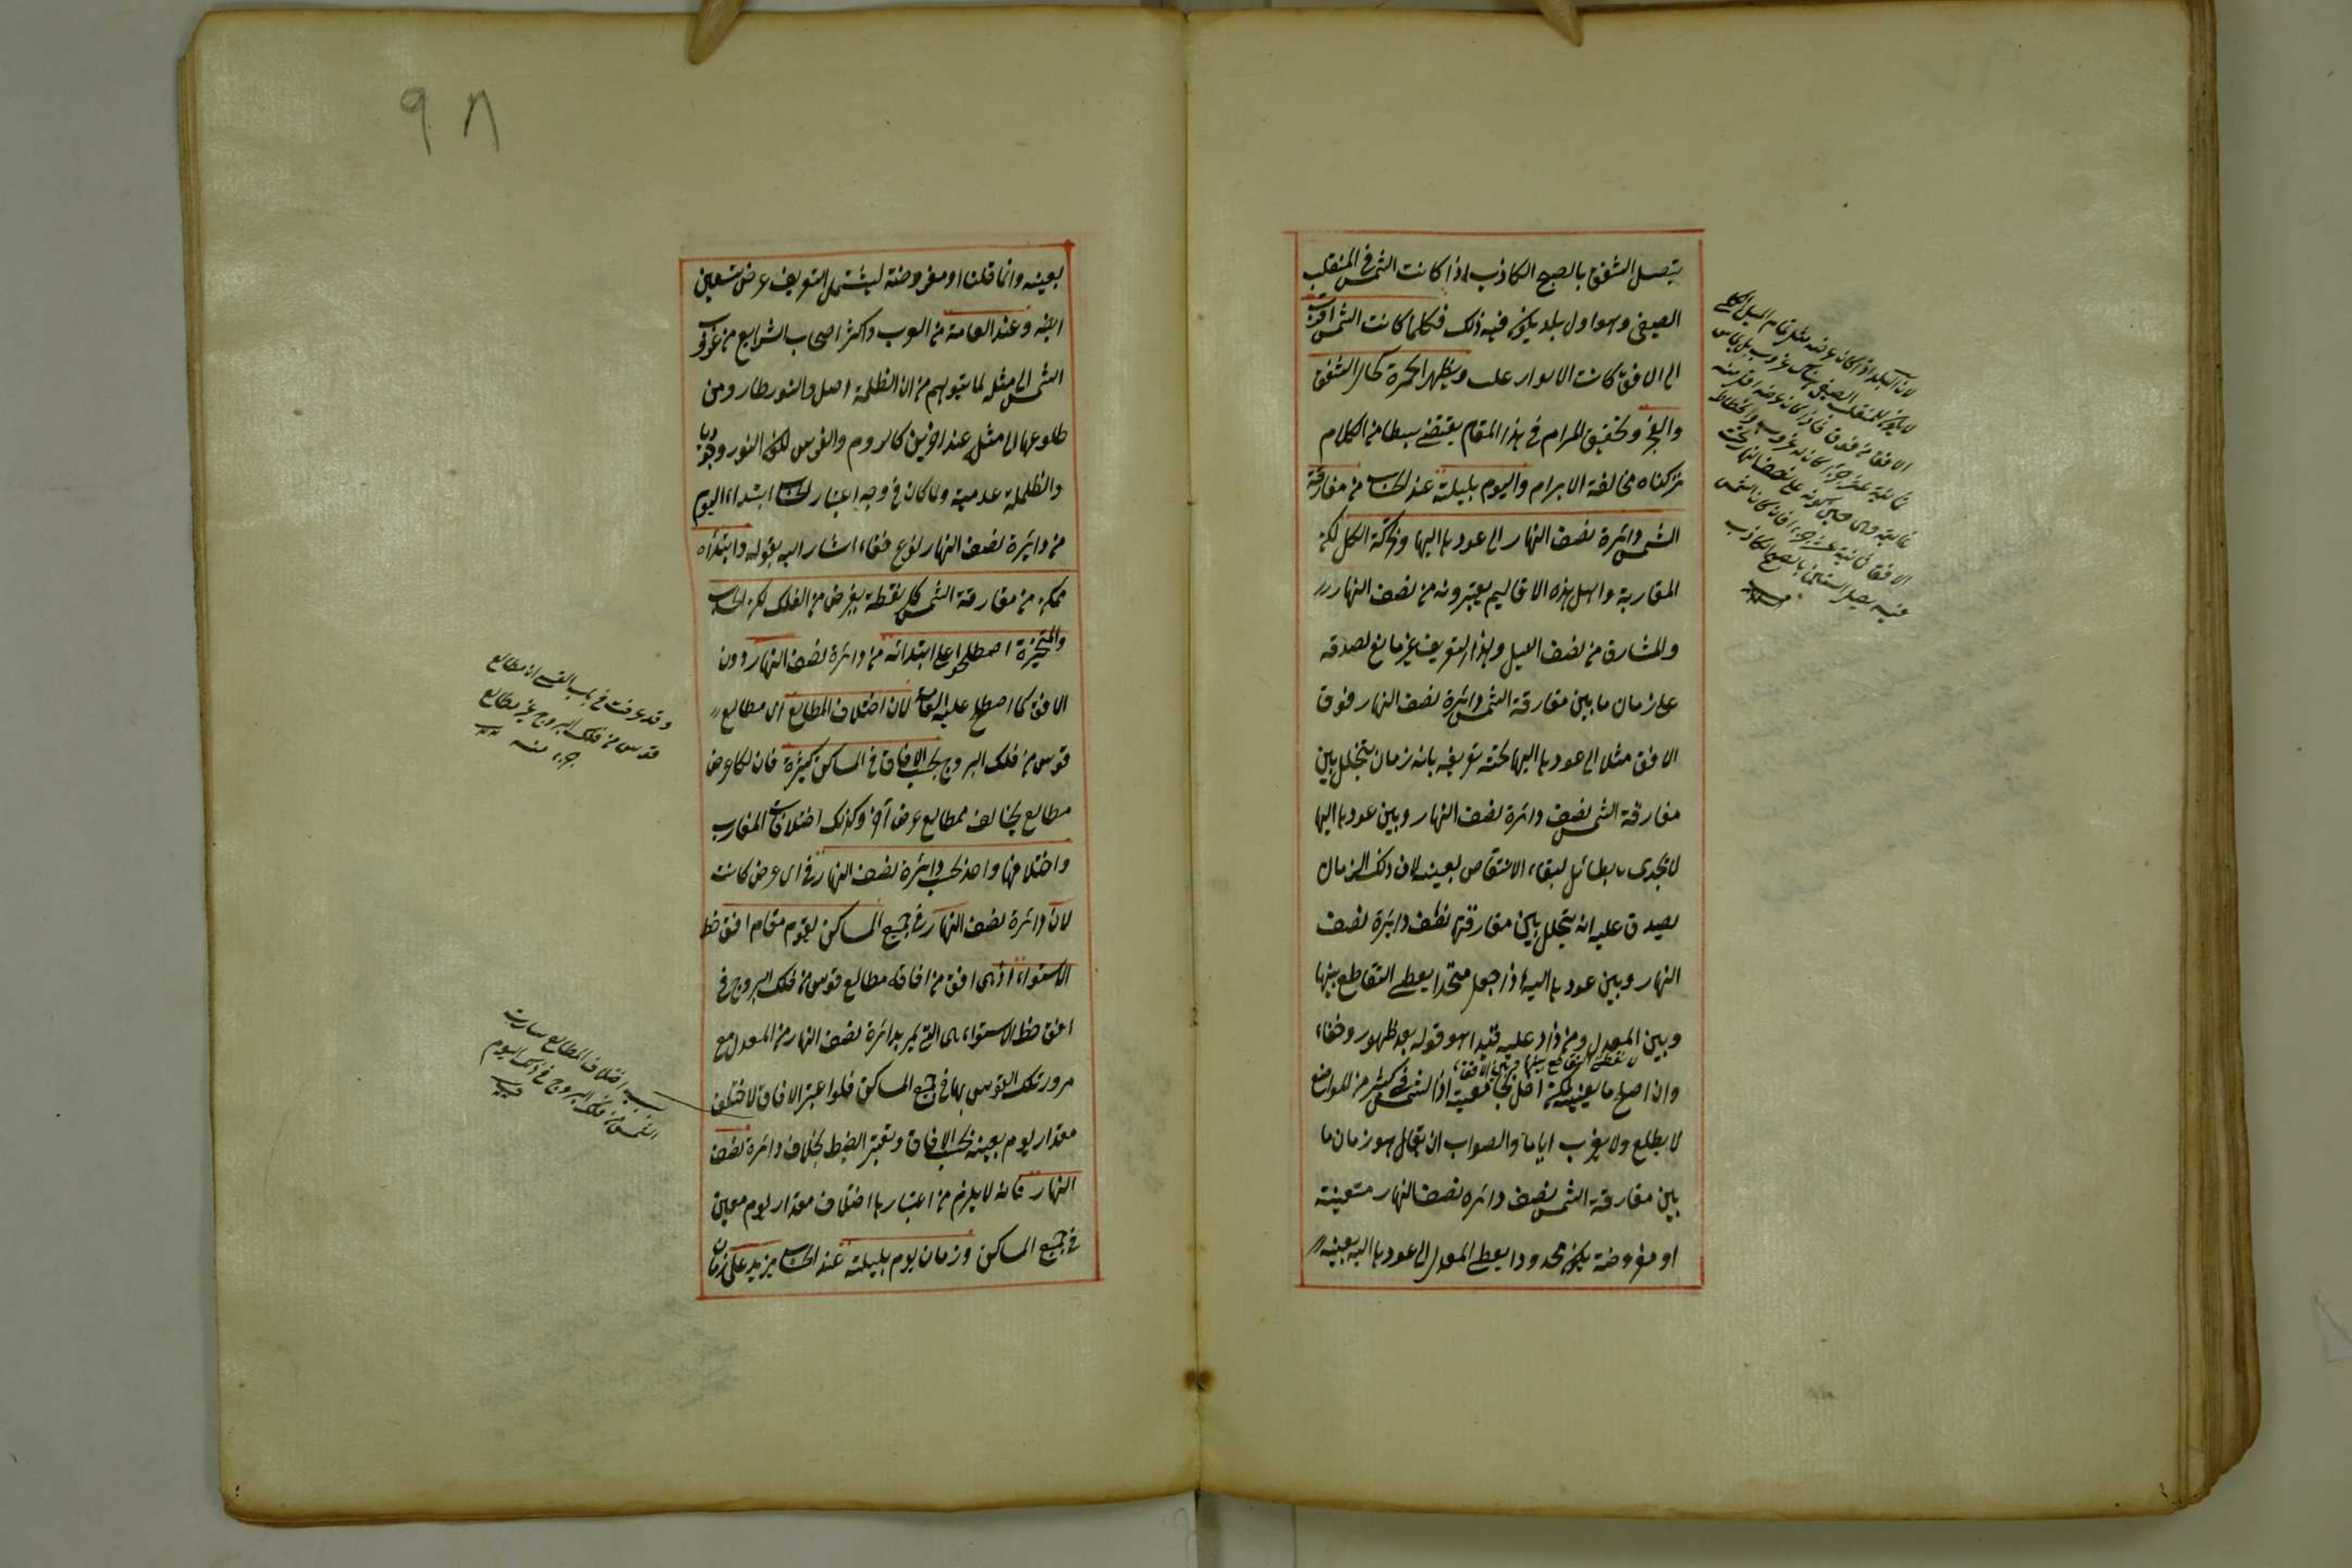 يتصل الشفق بالصبح الكاذب اذا كانت الشمس في المنقلب
الصيفي وهو اول بلد يكون فيه ذلك فكلما كانت الشمس اقرب
الى الافق كانت الانوار عليه ويظهر الحمرة كحال الشفق
والفجر وتحقيق المرام في هذا المقام يقتضي بسطا من الكلام
تركناه مخالفة الابرام واليوم بليلته عند الحساب من مفارقة
الشمس دائرة نصف النهار الى عودها اليها وحركة الكل لكن
المغاربة واهل هذه الاقاليم يعتبرونه من نصف النهار
والمشارق من نصف الليل وهذا التعريف غير مانع لصدقه
على زمان ما بين مفارقة الشمس دائرة نصف النهار فوق
الافق مثلا الى عودها اليها تحته تعريفه بانه زمان يتخلل بين
مفارقة الشمس نصف دائرة نصف النهار وبين عودها اليها
لا يجدى بطائل لبقاء الانتقاص بعينه لان ذلك الزمان
يصدق عليه انه يتخلل بين مفارقتها نصف دائرة نصف
النهار وبين عودها اليه اذا جعل متحدا يعطى التقاطع بينها
وبين المعدل ومن زاد عليه قيدا هو قوله بعد ظهور وخفاء
وان اصلح ما بعينه لكنه اخل بجامعيته اذ الشمس في كثير من المواضع
لا يطلع ولا يغرب اياما والصواب ان يقال هو زمان ما
بين مفارقة الشمس نصف دائرة نصف النهار متعينة
او مفروضة يكون محدودا يعطى المعدل الى عودها اليه بعينه
لان البلد اذا كان عرضه مثل تمام الميل الكلي
لا يكون للمنقلب الصيفي هناك غروب بل يماس
الافق من فوق فاذا كان عرضه اقل منه
الافق ثمانية عشر جزء فان كان الشمس
فيه يتصل الشفق بالصبح الكاذب
٩٨
بعينه وانما قلنا او مفروضة ليشتمل التعريف عرض تسعين
ايضا وعند العامة من العرب واكثر اصحاب الشرايع من غروب
الشمس الى مثله لما يتوهم من ان الظلمة اصل والنور طار ومن
طلوعها الى مثله عند اخرين كالروم والفرس لكون النور وجوديا
والظلمة عدمية ولما كان في وجه اعتبار الحساب ابتداء اليوم
من دائرة نصف النهار نوع خفاء اشار اليه بقوله وابتداؤه
ممكن من مفارقة الشمس كل نقطة يفرض من الفلك لكن الحساب
والمنجمة اصطلحوا على ابتدائه من دائرة نصف النهار دون
الافق كما اصطلح عليه العامة لان اختلاف المطالع اى مطالع
قوس من فلك البروج بحسب الافاق في المساكن كثيرة فان لكل عرض
مطالع يخالف مطالع عرض آخر وكذلك اختلافات المغارب
واختلافها واحد بحسب دائرة نصف النهار في اى عرض كانت
لان دائرة نصف النهار في جميع المساكن يقوم مقام افق خط
الاستواء اذ هى افق من افاقه مطالع قوس من فلك البروج في
افق خط الاستواء هى التي يمر بدائرة نصف النهار من المعدل مع
مرور تلك القوس بها في جميع المساكن فلو اعتبر الافاق لاختلف
مقدار يوم بعينه بحسب الافاق وتعسر الضبط بخلاف دائرة نصف
النهار فانه لا يلزم من اعتبارها اختلاف مقدار يوم معين
في جميع المساكن وزمان يوم بليلته عند الحساب يزيد على زمان
وقد عرفت في باب القسى ان مطالع
قوس من فلك البروج غير مطالع
جزء منه
بسبب اختلاف المطالع سارت
الشمس من فلك البروج في ذلك اليوم